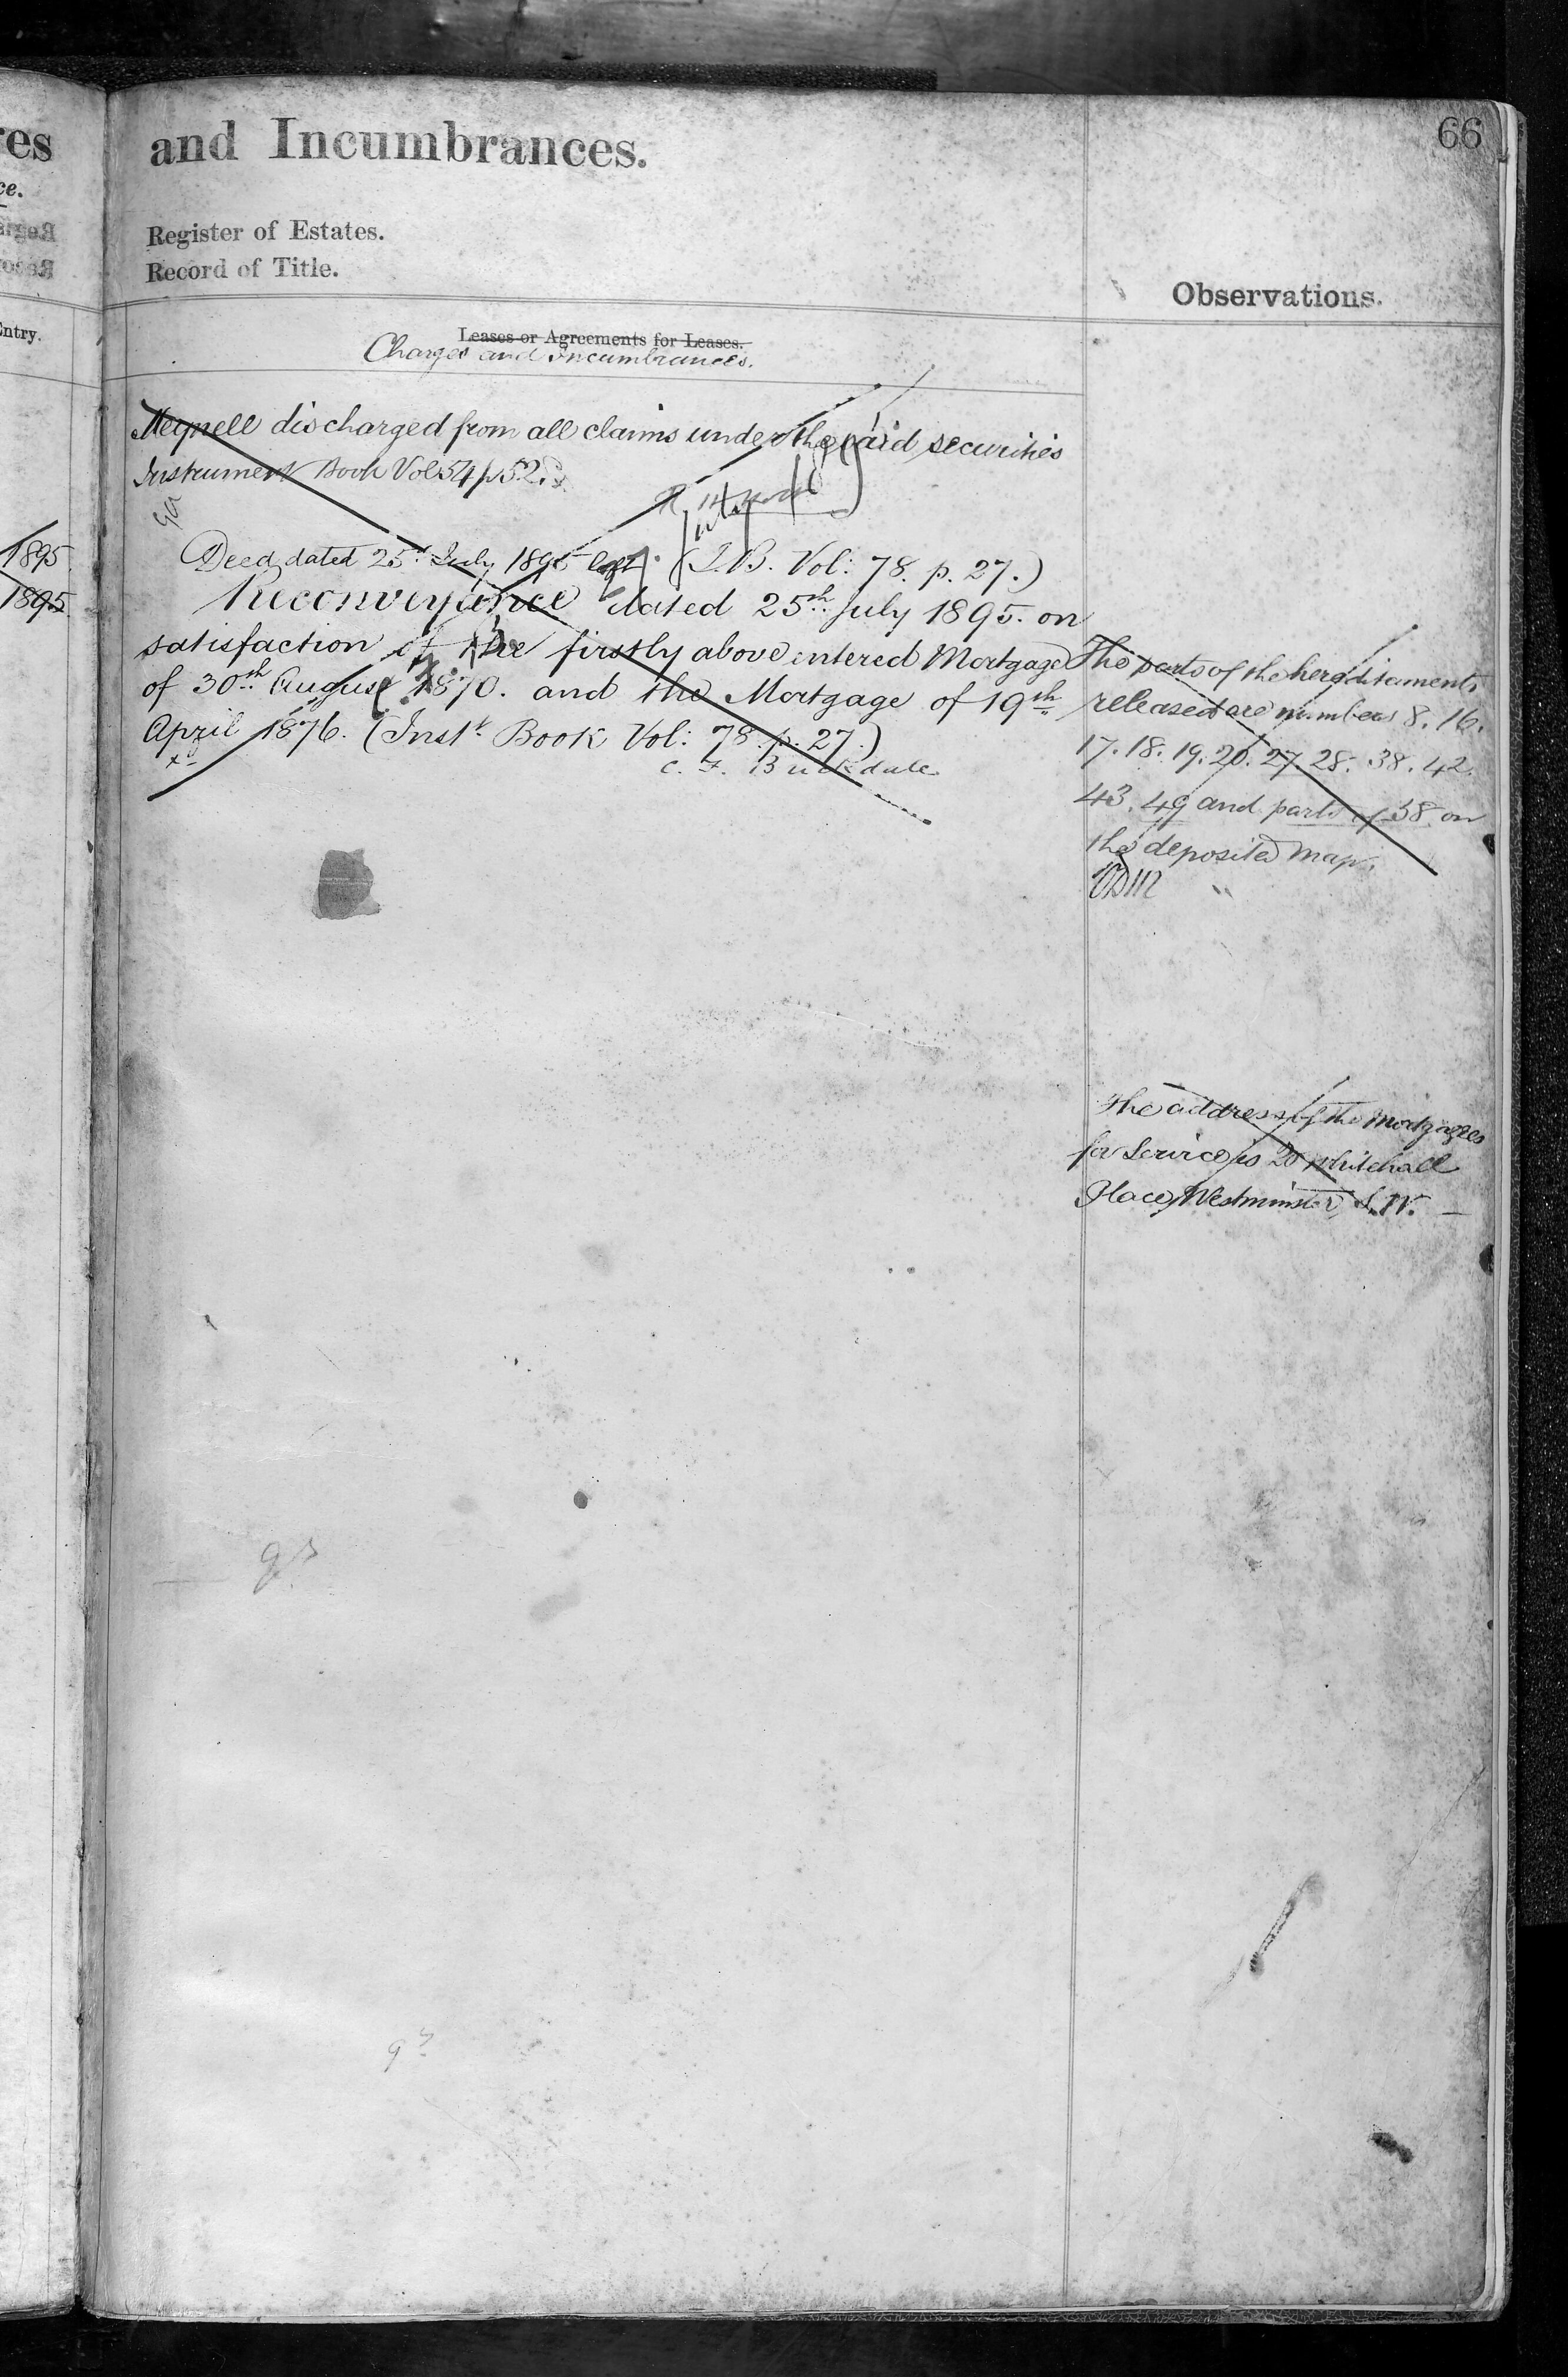 66
res
and Incumbrances.
ce.
Register of Estates.
Record of Title.
Observations.
Entry.
Leases or Agreements for Leases.
Charges and Incumbrances.
Meynell discharged from all claims under the said securities
Instrument Book Vol 54 p 52.
1895
1895
Deed dated 25th July 1895 (I.B. Vol: 78. p. 27.)
Reconveyance dated 25th July 1895. on
satisfaction of the firstly above entered Mortgage
of 30th August 1870. and the Mortgage of 19th
April 1876. (Instt Book Vol: 78. p. 27.)
The parts of the hereditaments
released are numbers 8. 16.
17. 18. 19. 20. 27. 28. 38. 42.
43. 49 and parts of 58 on
the deposited Map.
The address of the Mortgagees
for Service is 20 Whitehall
Place, Westminster, S.W.